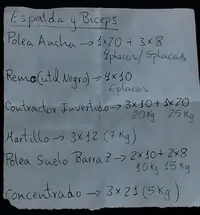 Espalda y Biceps
Polea Ancha → 1x20 + 3x8
4placas/5placas
Remo (util Negro) → 4x10
6placas
Contractor Invertido → 3x10 + 1x20
20Kg 25Kg
Martillo → 3x12 (7Kg)
Polea Suelo Barra Z → 2x10 + 2x8
10Kg 15Kg
Concentrado → 3x21 (5Kg)